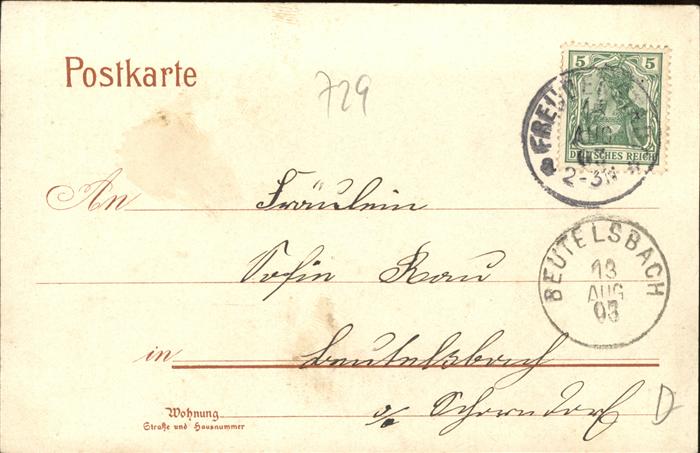 Postkarte
729
5 5
DEUTSCHES REICH
AUG
2-3N
An Fräulein
Sofie Rau
in Beutelsbach
Wohnung
Straße und Hausnummer
a/ Schorndorf
BEUTELSBACH
13
AUG
03
D